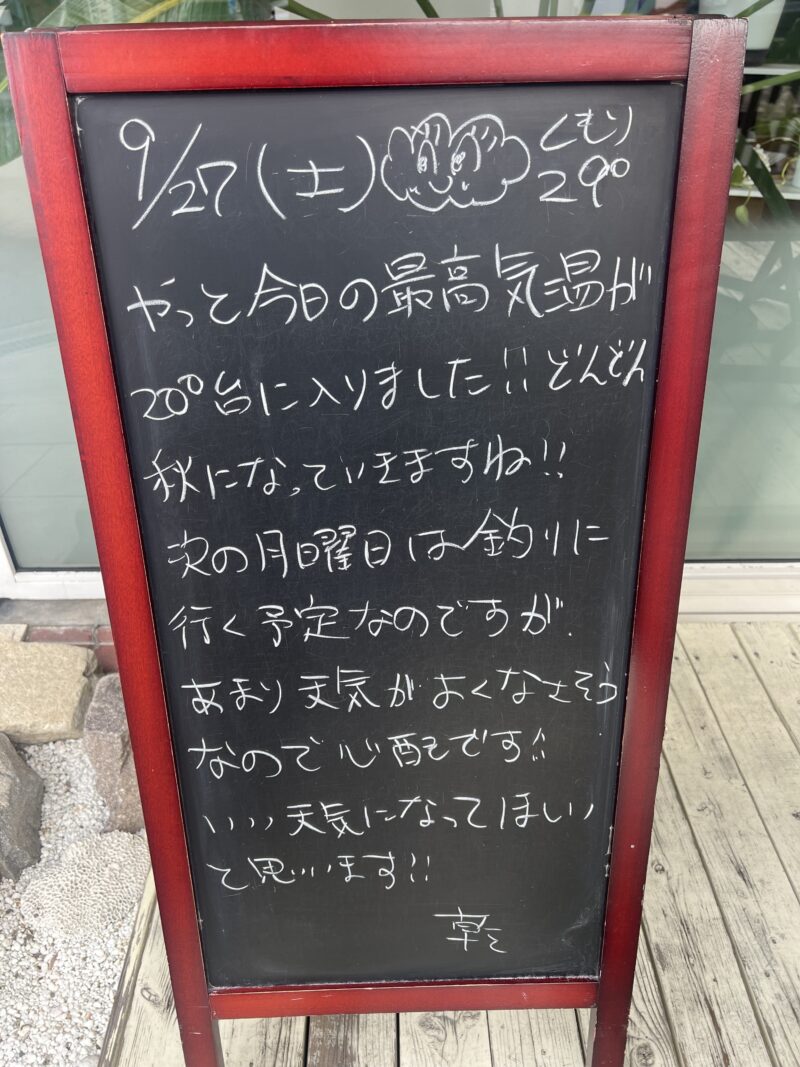 9/27(土) くもり 29°
やっと今日の最高気温が
20°台に入りました!! どんどん
秋になっていきますね!!
次の月曜日は釣りに
行く予定なのですが、
あまり天気がよくなさそう
なので心配です!!
いい天気になってほしい
と思います!!
乾